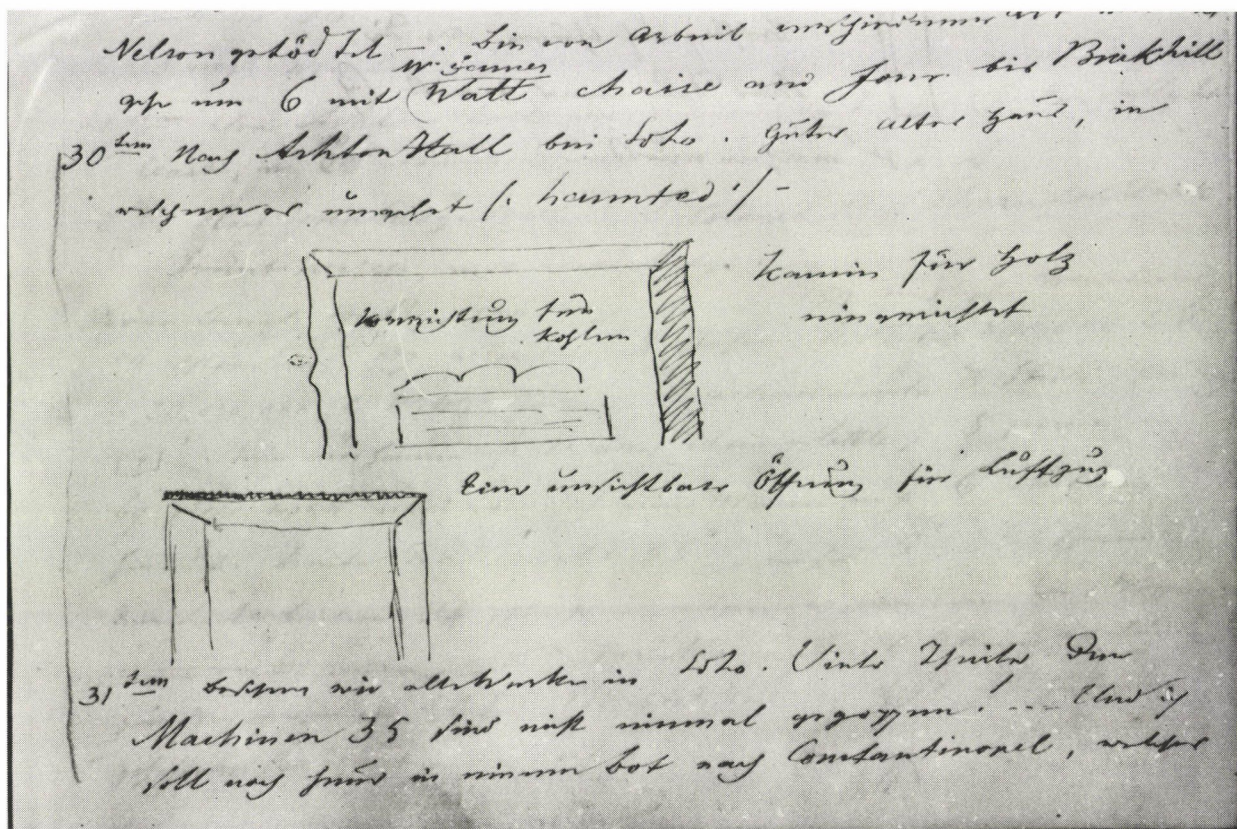 Nelson getödtet —. bin von Arbeit verschiedener Art
gehe um 6 mit Watt chaise und four bis Birkhill
30tem Nach Ashton Hall bei Soho. Gutes altes Haus, in
welchem es umgehet /: haunted :/ –
Kamin für Holz
eingerichtet
Vorrichtung für
Kohlen
Eine unsichtbare Öffnung für Luftzug
31tem besehen wir alle Werke in Soho. Viele Theile der
Machinen 35 sind nicht einmal gegossen! --- Und ich
soll noch heuer in einem bot nach Constantinopel, welches